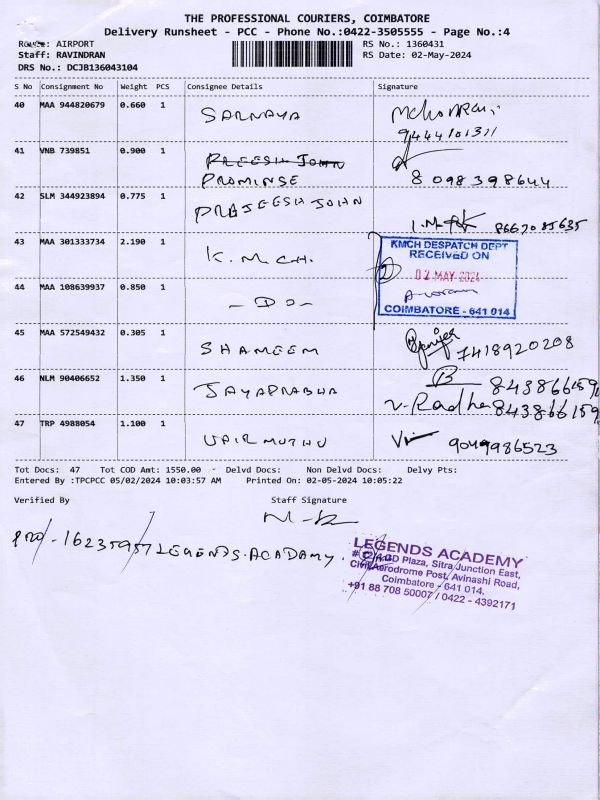 THE PROFESSIONAL COURIERS, COIMBATORE
Delivery Runsheet - PCC - Phone No.:0422-3505555 - Page No.:4
Route: AIRPORT RS No.: 1360431
Staff: RAVINDRAN RS Date: 02-May-2024
DRS No.: DCJB136043104
S No Consignment No Weight PCS Consignee Details Signature
40 MAA 944820679 0.660 1 SARNAYA
9444101311
41 VNB 739851 0.900 1 PREESH JOHN
PROMINSE 8098398644
42 SLM 344923894 0.775 1 PRAJEESH JOHN
8667085635
43 MAA 301333734 2.190 1 K.M.C.H.
KMCH DESPATCH DEPT
RECEIVED ON
02 MAY 2024
COIMBATORE - 641 014
44 MAA 108639937 0.850 1 - DO -
45 MAA 572549432 0.305 1 SHAMEEM 7418920208
46 NLM 90406652 1.350 1 JAYAPRABHA 843866159
V. Radha 843866159
47 TRP 4988054 1.100 1 VAIRMUTHU 9049986523
Tot Docs: 47 Tot COD Amt: 1550.00 - Delvd Docs: Non Delvd Docs: Delvy Pts:
Entered By :TPCPCC 05/02/2024 10:03:57 AM Printed On: 02-05-2024 10:05:22
Verified By Staff Signature
LEGENDS. ACADEMY.
LEGENDS ACADEMY
Plaza, Sitra Junction East,
Civil Aerodrome Post, Avinashi Road,
Coimbatore - 641 014.
+91 88 708 50007 / 0422 - 4392171